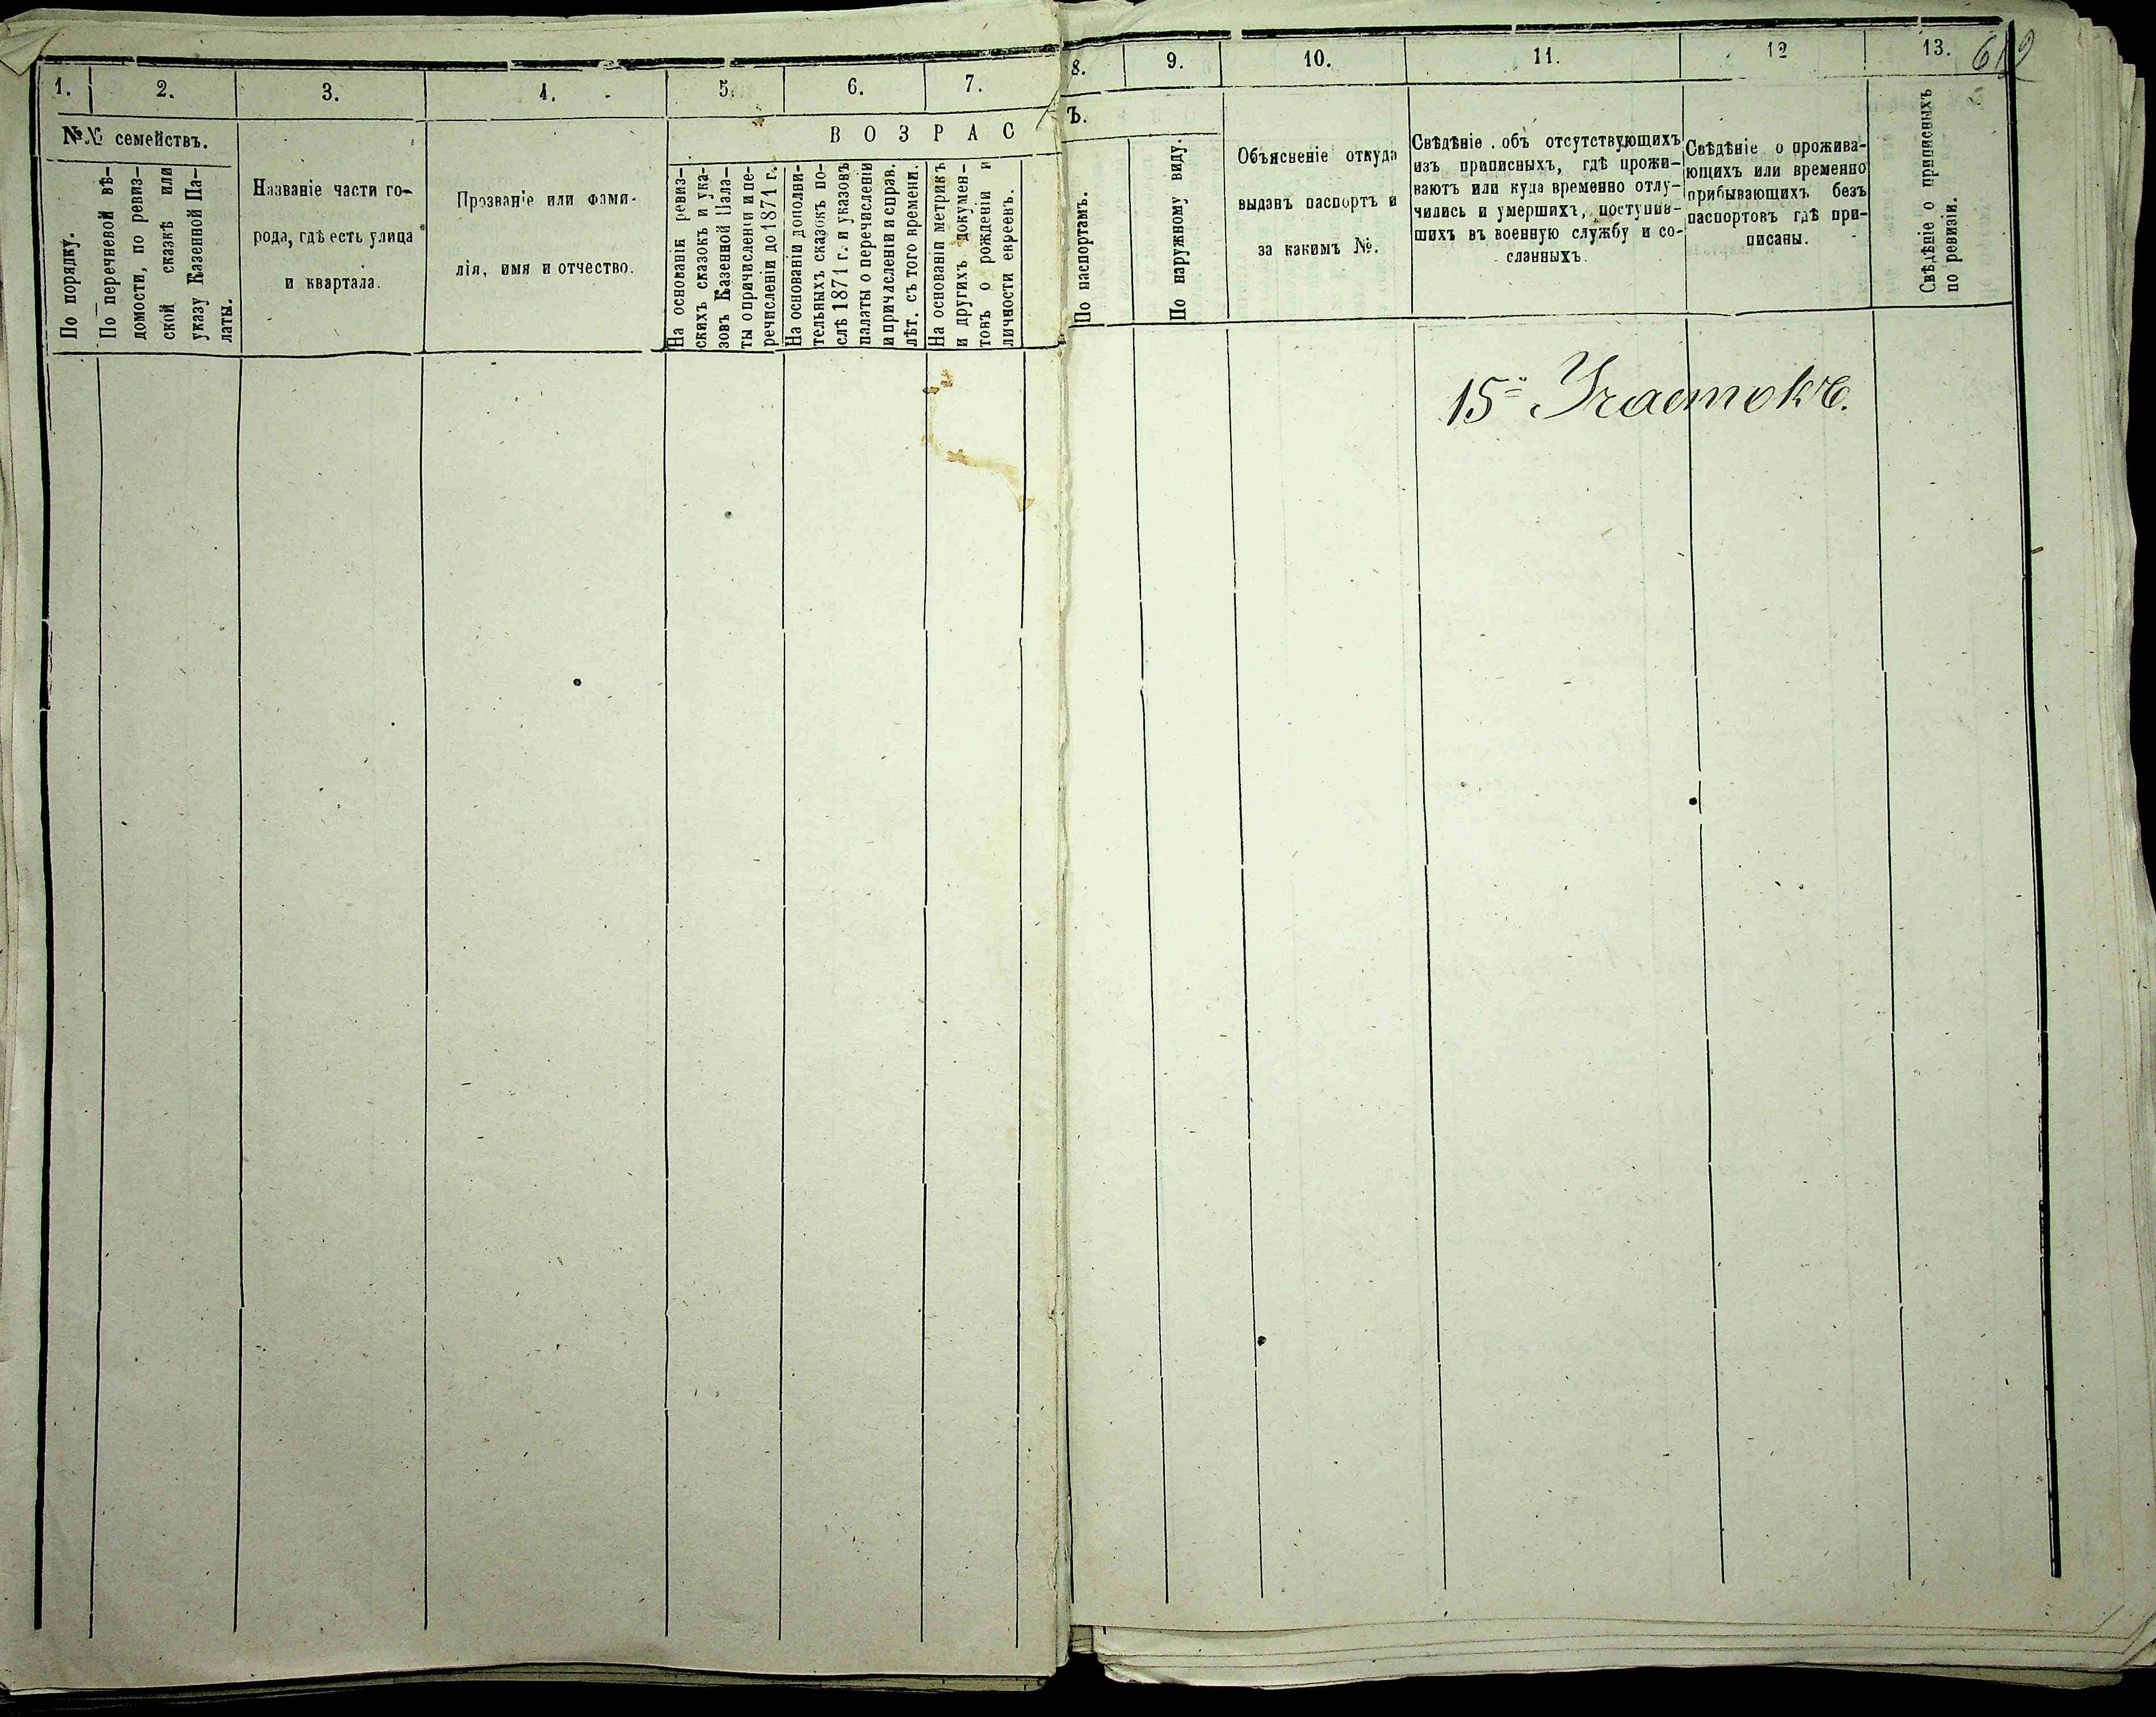 1.
2.
3.
4.
5.
6.
7.
№№ семействъ.
В О З Р А С
По порядку.
По перечневой вѣ-
домости, по ревиз-
ской сказкѣ или
указу Казенной Па-
латы.
Названіе части го-
рода, гдѣ есть улица
и квартала.
Прозваніе или фами-
лія, имя и отчество.
На основаніи ревиз-
скихъ сказокъ и ука-
зовъ Казенной Пала-
ты о причисленіи и пе-
речисленіи до 1871 г.
На основаніи дополни-
тельныхъ сказокъ по-
слѣ 1871 г. и указовъ
палаты о перечисленіи
и причисленіи и справ.
лѣт. съ того времени.
На основаніи метрикъ
и другихъ докумен-
товъ о рожденіи и
личности евреевъ.
8.
9.
10.
11.
12
13.
Ъ.
По паспортамъ.
По наружному виду.
Объясненіе откуда
выданъ паспортъ и
за какимъ №.
Свѣдѣніе объ отсутствующихъ
изъ приписныхъ, гдѣ прожи-
ваютъ или куда временно отлу-
чились и умершихъ, поступив-
шихъ въ военную службу и со-
сланныхъ.
Свѣдѣніе о прожива-
ющихъ или временно
прибывающихъ безъ
паспортовъ гдѣ при-
писаны.
Свѣдѣніе о приписныхъ
по ревизіи.
15й Участокъ.